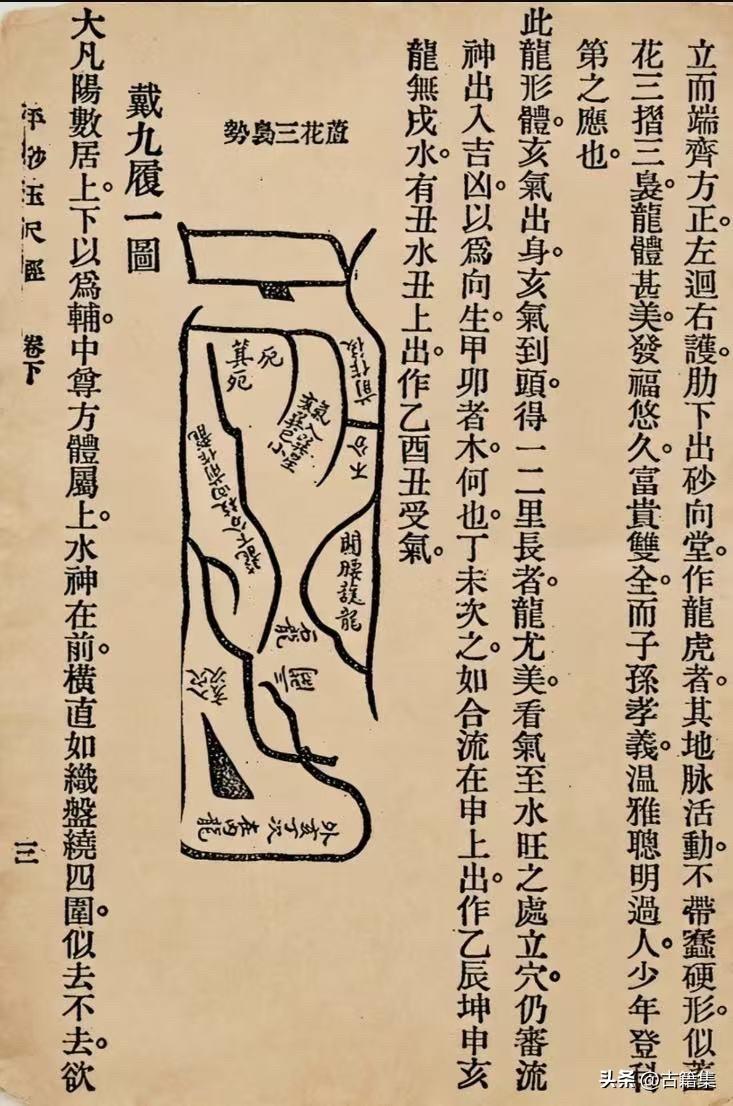 立而端齊方正。左迴右護。肋下出砂向堂。作龍虎者。其地脉活動。不帶蠢硬形。似蓋
花三摺三裊。龍體甚美。發福悠久。富貴雙全。而子孫孝義。温雅聰明過人。少年登科
第之應也。
此龍形體。亥氣出身。亥氣到頭。得一二里長者。龍尤美。看氣至水旺之處立穴。仍審流
神出入吉凶。以爲向生。甲卯者木。何也。丁未次之。如合流在申上出。作乙辰坤申亥
龍無戌水。有丑水丑上出。作乙酉丑受氣。
蓋花三裊勢
前作後
不分
開腰護龍
龍
戴九履一圖
大凡陽數居上。下以爲輔。中尊方體屬上。水神在前。橫直如織。盤繞四圍。似去不去。欲
平沙玉尺經 卷下 三
头条 @古籍集